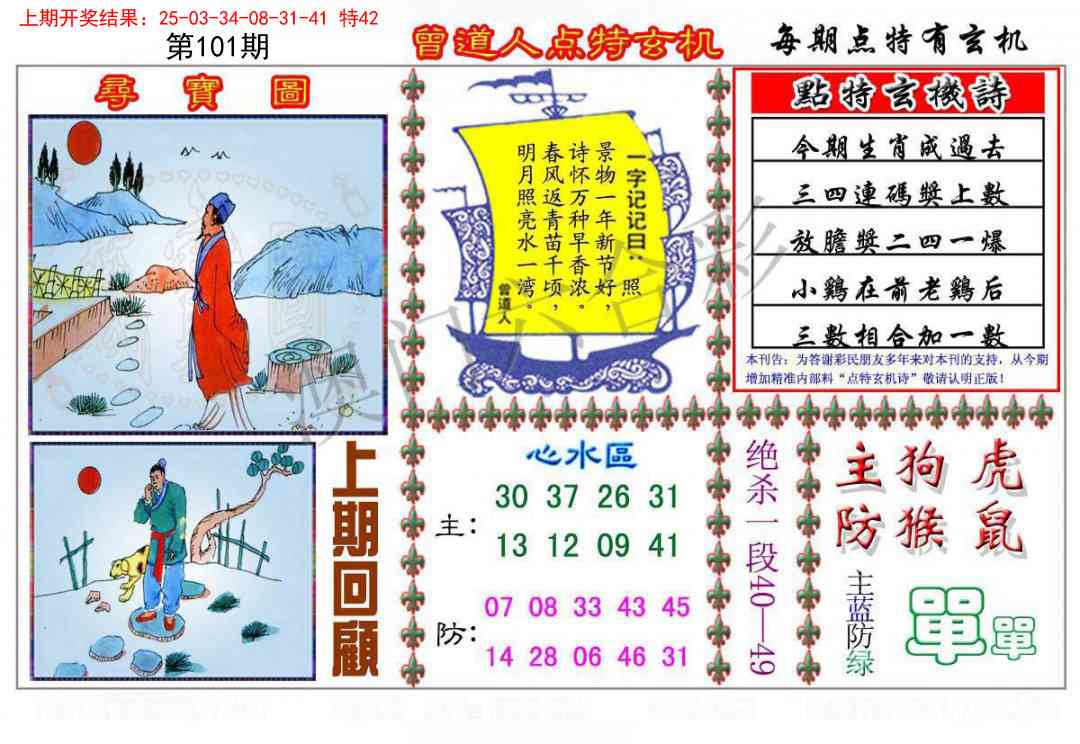 上期开奖结果：25-03-34-08-31-41 特42
第101期
曾道人点特玄机
每期点特有玄机
尋寶圖
一字记记曰：照
景物一年新节好，
诗怀万种早香浓。
春风返青苗千顷，
明月照亮水一湾。
曾道人
點特玄機詩
今期生肖成過去
三四連碼獎上數
放膽獎二四一爆
小鷄在前老鷄后
三數相合加一數
本刊告：为答谢彩民朋友多年来对本刊的支持，从今期
增加精准内部料“点特玄机诗”敬请认明正版！
上期回顧
心水區
主：
30 37 26 31
13 12 09 41
防：
07 08 33 43 45
14 28 06 46 31
绝杀一段40—49
主狗虎
防猴鼠
主蓝防绿
單單
澳门六合彩